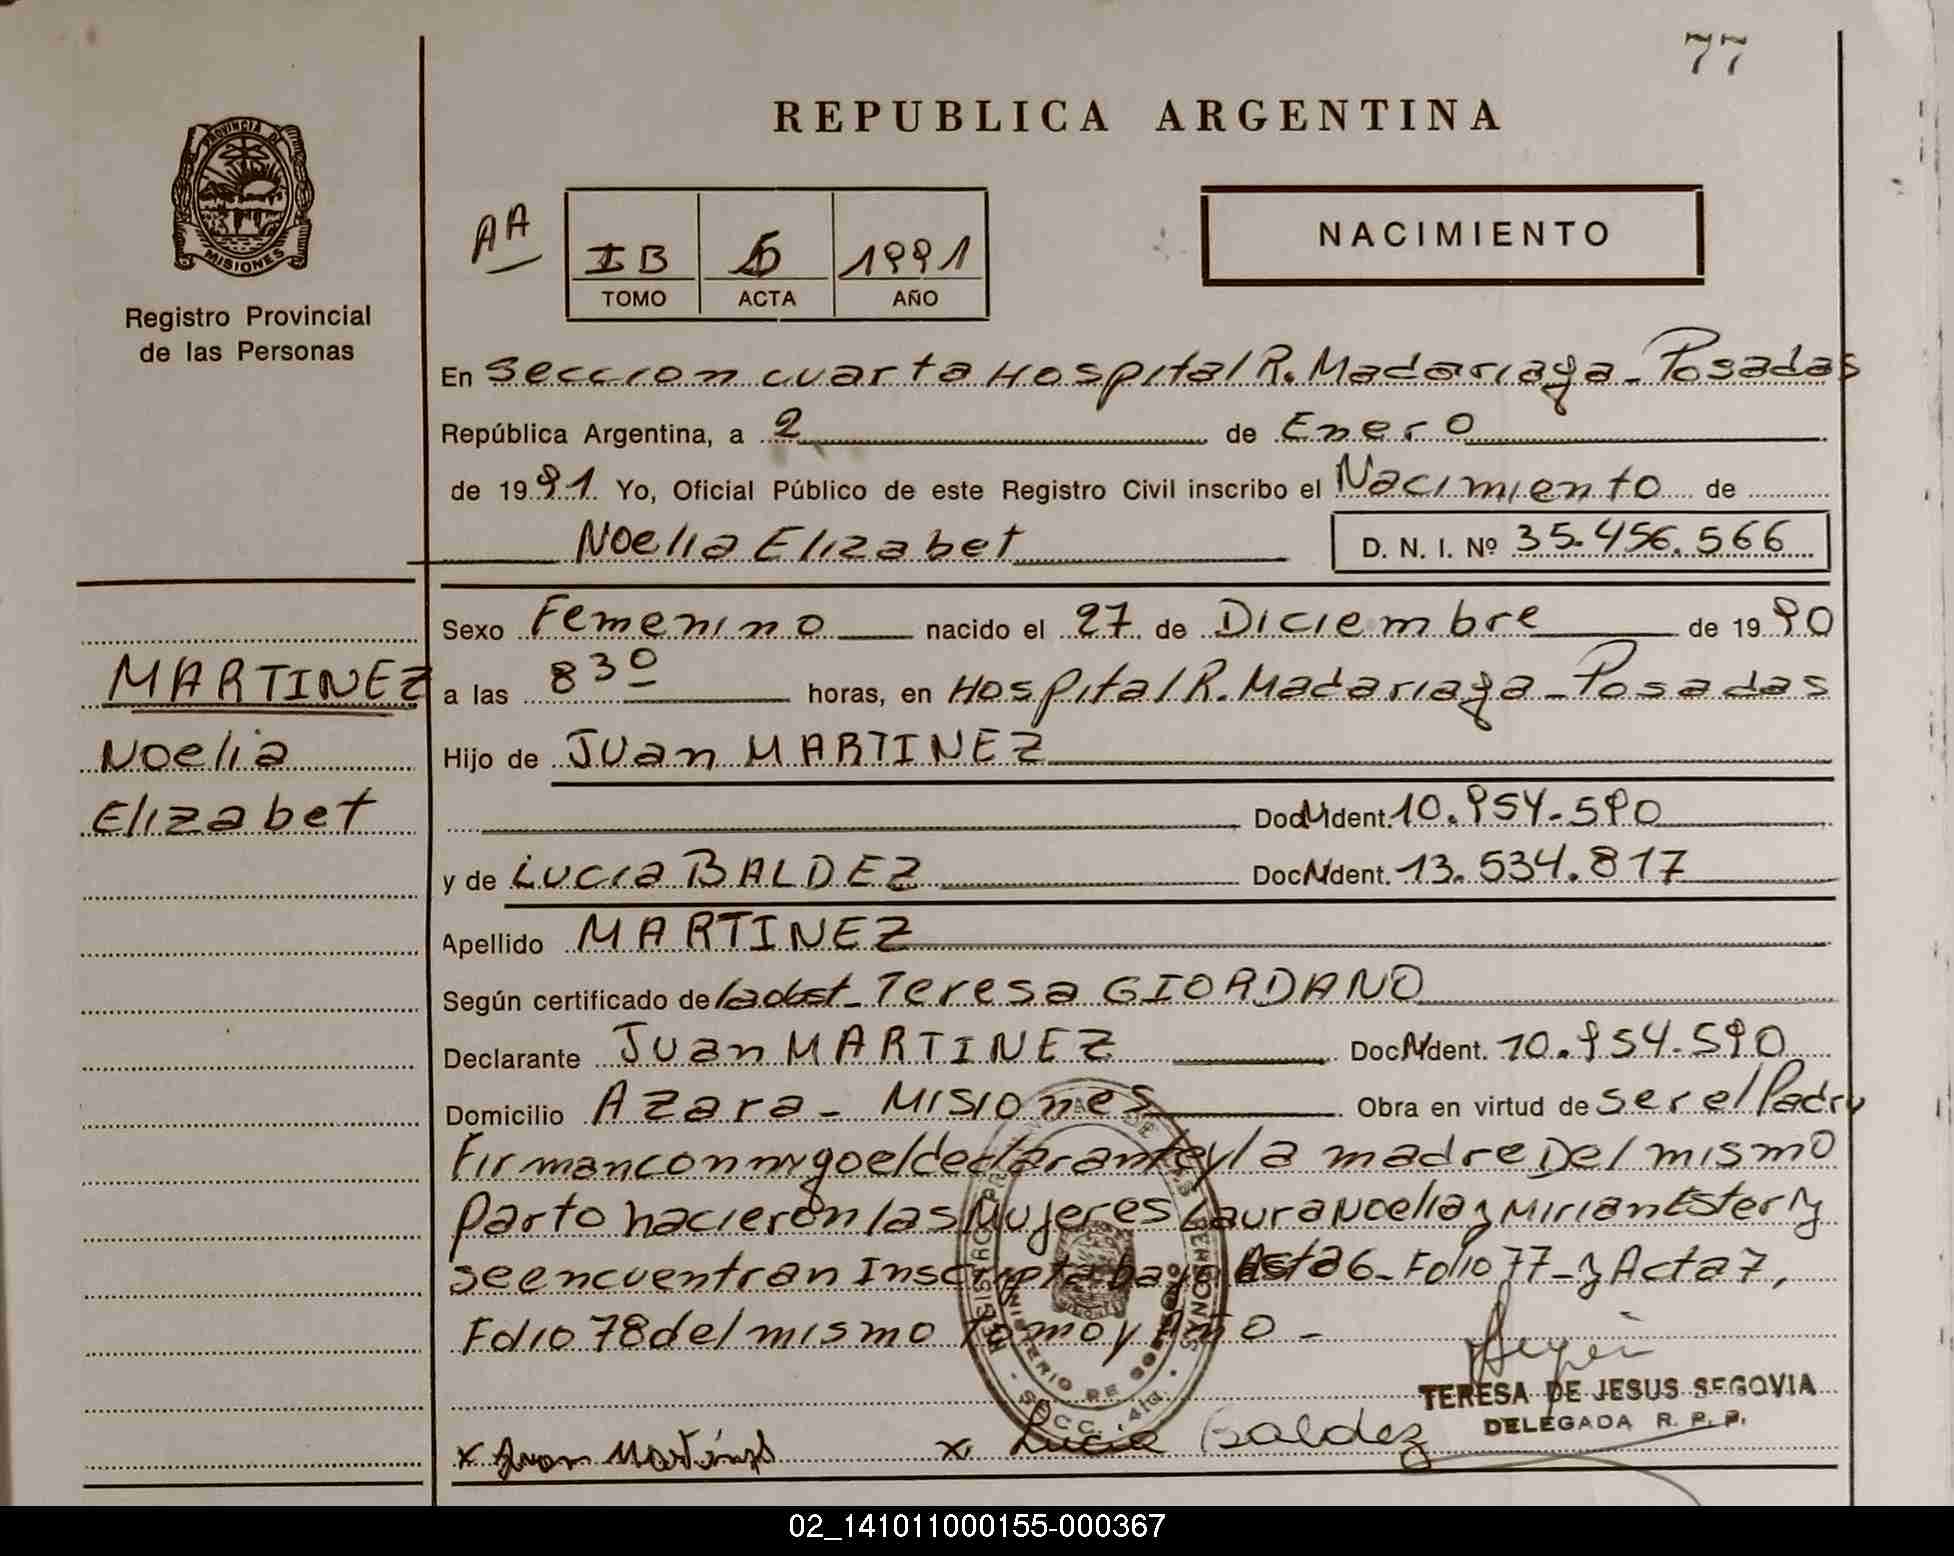 77
REPUBLICA ARGENTINA
PROVINCIA DE
MISIONES
Registro Provincial
de las Personas
AA
IB 6 1991
TOMO ACTA AÑO
NACIMIENTO
En Seccion cuarta Hospital R. Madariaga - Posadas
República Argentina, a 2 de Enero
de 1991. Yo, Oficial Público de este Registro Civil inscribo el Nacimiento de
Noelia Elizabet D. N. I. Nº 35.456.566
MARTINEZ
Noelia
Elizabet
Sexo Femenino nacido el 27 de Diciembre de 1990
a las 8 30 horas, en Hospital R. Madariaga - Posadas
Hijo de Juan MARTINEZ
Doc. Ident. 10.954.590
y de Lucia BALDEZ Doc. Ident. 13.534.817
Apellido MARTINEZ
Según certificado de la obst. Teresa GIORDANO
Declarante Juan MARTINEZ Doc. Ident. 10.954.590
Domicilio Azara - Misiones. Obra en virtud de ser el Padre
Firman conmigo el declarante y la madre Del mismo
parto nacieron las Mujeres Laura Noelia y Mirian Ester y
se encuentran Inscripta bajo Acta 6 - Folio 77 - y Acta 7,
Folio 78 del mismo Tomo y Año -
TERESA DE JESUS SEGOVIA
DELEGADA R. P. P.
x Juan Martinez x Lucia Baldez
02_141011000155-000367